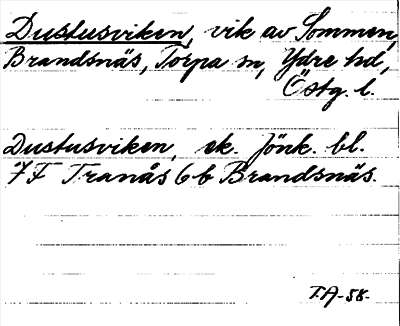 Dustusviken, vik av Sommen,
Brandsnäs, Torpa sn, Ydre hd,
Östg. l.
Dustusviken, ek. Jönk. bl.
7F Tranås 6b Brandsnäs.
T.A-58-